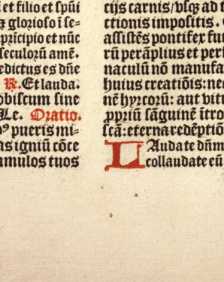 et filio et spũi
ꝫ glorioso i se-
prĩcipio et nũc
seculorũ amẽ.
edictus es dñe
R. Et lauda.
obiscum sine
Le. Oratio.
pueris mi-
as igniũ cõce
amulos tuos
tijs carnis/vsqꝫ ad t
ctionis impositis.
assistẽs pontifex fut
rũ perãplius et perf
naculũ nõ manufa
huius creatiõis: ne
nẽ hyrcorũ: aut vit
ppriũ sãguinẽ ĩtro
sc̃a: eterna redẽptiõ
LAudate dñm
collaudate eũ